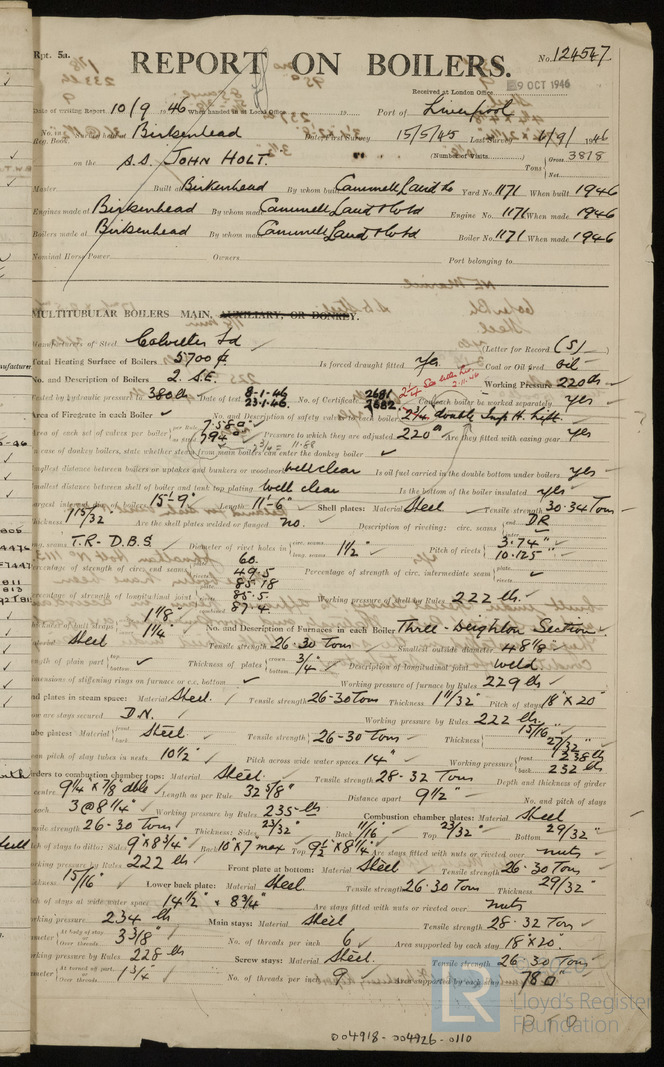 Rpt. 5a.
REPORT ON BOILERS.
No. 124547.
Received at London Office 9 OCT 1946
Date of writing Report 10/9 1946 When handed in at Local Office 19 Port of Liverpool
No. in Reg. Book. Birkenhead Date, First Survey 15/5/45 Last Survey 4/9/ 1946
on the S.S. JOHN HOLT. (Number of Visits) Tons Gross 3818 Net
Master Built at Birkenhead By whom built Cammell Laird & Co Yard No. 1171 When built 1946
Engines made at Birkenhead By whom made Cammell Laird & Co Ltd Engine No. 1171 When made 1946
Boilers made at Birkenhead By whom made Cammell Laird & Co Ltd Boiler No. 1171 When made 1946
Nominal Horse Power Owners Port belonging to
MULTITUBULAR BOILERS MAIN, AUXILIARY, OR DONKEY.
Manufacturers of Steel Colvilles Ltd (Letter for Record (S)
Total Heating Surface of Boilers 5700 Is forced draught fitted Yes Coal or Oil fired oil
No. and Description of Boilers 2 S.E. Working Pressure 220 lb
Tested by hydraulic pressure to 380 lb Date of test 8-1-46 23-1-46 No. of Certificate 2681 2682 Can each boiler be worked separately yes
Area of Firegrate in each Boiler No. and Description of safety valves to each boiler 2 1/4 double Imp. H. Lift.
Area of each set of valves per boiler per Rule 7.580 as fitted 7.94 Pressure to which they are adjusted 220 Are they fitted with easing gear yes
In case of donkey boilers, state whether steam from main boilers can enter the donkey boiler
Smallest distance between boilers or uptakes and bunkers or woodwork well clear Is oil fuel carried in the double bottom under boilers yes
Smallest distance between shell of boiler and tank top plating well clear Is the bottom of the boiler insulated yes
Largest internal dia. of boilers 15'-9" Length 11'-6" Shell plates: Material Steel Tensile strength 30-34 Tons
Thickness 1 15/32 Are the shell plates welded or flanged no. Description of riveting: circ. seams end DR
long. seams T.R-D.B.S Diameter of rivet holes in circ. seams long. seams 1 1/2 Pitch of rivets 3.74" 10.125"
Percentage of strength of circ. end seams plate 60. rivets 49.5 Percentage of strength of circ. intermediate seam plate rivets
Percentage of strength of longitudinal joint 85.18 85.5 87.4 Working pressure of shell by Rules 222 lb
Thickness of butt straps 1 1/8 1 1/4 No. and Description of Furnaces in each Boiler Three-Deighton Section
Material Steel Tensile strength 26-30 Tons Smallest outside diameter 48 1/8
Length of plain part top bottom Thickness of plates crown bottom 3/4 Description of longitudinal joint weld.
Dimensions of stiffening rings on furnace or c.c. bottom Working pressure of furnace by Rules 229 lb
End plates in steam space: Material Steel Tensile strength 26-30 Tons Thickness 1 11/32" Pitch of stays 18" X 20"
How are stays secured D.N. Working pressure by Rules 222 lb
Tube plates: Material front back Steel Tensile strength 26-30 Tons Thickness 15/16" 27/32"
Mean pitch of stay tubes in nests 10 1/2" Pitch across wide water spaces 14" Working pressure front 238 lb back 232 lb
Girders to combustion chamber tops: Material Steel Tensile strength 28-32 Tons Depth and thickness of girder
at centre 9 1/4 X 7/8 dble Length as per Rule 32 5/8" Distance apart 9 1/2" No. and pitch of stays
in each 3 @ 8 1/4" Working pressure by Rules 235 lb Combustion chamber plates: Material Steel
Tensile strength 26-30 Tons Thickness: Sides 23/32" Back 11/16" Top 23/32" Bottom 29/32"
Pitch of stays to ditto: Sides 9" X 8 3/4" Back 10" X 7 max Top 9 1/2 X 8 1/4" Are stays fitted with nuts or riveted over nuts
Working pressure by Rules 222 lb Front plate at bottom: Material Steel Tensile strength 26-30 Tons
Thickness 15/16" Lower back plate: Material Steel Tensile strength 26-30 Tons Thickness 29/32"
Pitch of stays at wide water space 14 1/2" x 8 3/4" Are stays fitted with nuts or riveted over nuts
Working pressure 234 lb Main stays: Material Steel Tensile strength 28-32 Tons
Diameter At body of stay Over threads 3 3/8" No. of threads per inch 6 Area supported by each stay 18" X 20"
Working pressure by Rules 228 lb Screw stays: Material Steel Tensile strength 26-30 Tons
Diameter At turned off part Over threads 1 3/4" No. of threads per inch 9 Area supported by each stay 78
P.T.O
LR
Lloyd's Register
Foundation
004918-004926-0110